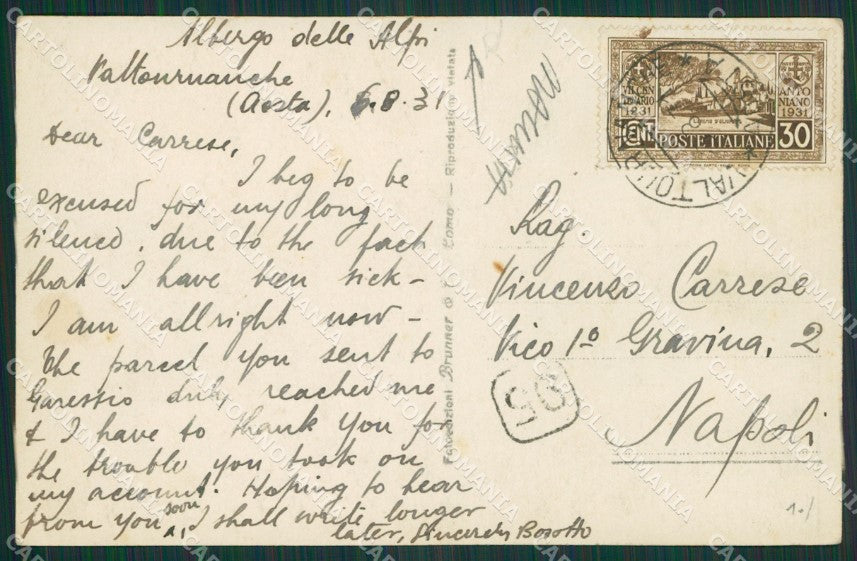 Albergo delle Alpi
Valtournanche
(Aosta), 6.8.31
Dear Carrese,
I beg to be
excused for my long
silence, due to the fact
that I have been sick -
I am allright now -
The parcel you sent to
Garessio duly reached me
& I have to thank you for
the trouble you took on
my account. Hoping to hear
from you soon, I shall write longer
later, Sincerely Bosotto
Fotoedizioni Brunner & C. Como - Riproduzione vietata
VII CEN
TENARIO
1231
ANTO
NIANO
1931
CENT. POSTE ITALIANE 30
VALTOUR
Rag.
Vincenzo Carrese
Vico 1º Gravina, 2
Napoli
CARTOLINOMANIA